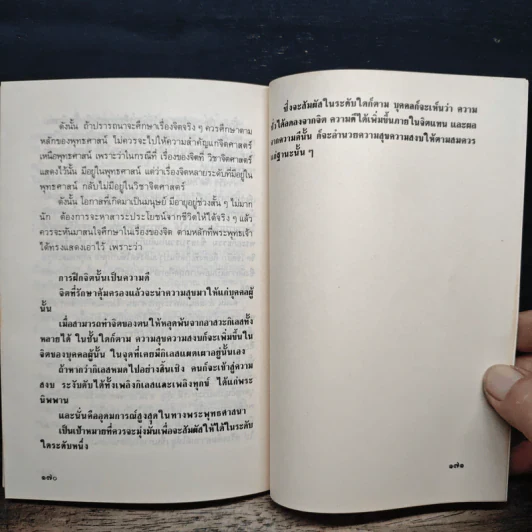 ดังนั้น ถ้าปรารถนาจะศึกษาเรื่องจิตจริง ๆ ควรศึกษาตาม
หลักของพุทธศาสน์ ไม่ควรจะไปให้ความสำคัญแก่จิตศาสตร์
เหนือพุทธศาสน์ เพราะว่าในกรณีที่ เรื่องของจิตที่ วิชาจิตศาสตร์
แสดงไว้นั้น มีอยู่ในพุทธศาสน์ แต่ว่าเรื่องจิตหลายระดับที่มีอยู่ใน
พุทธศาสน์ กลับไม่มีอยู่ในวิชาจิตศาสตร์
ดังนั้น โอกาสที่เกิดมาเป็นมนุษย์ มีอายุอยู่ช่วงสั้น ๆ ไม่มาก
นัก ต้องการจะหาสาระประโยชน์จากชีวิตให้ได้จริง ๆ แล้ว
ควรจะหันมาสนใจศึกษาในเรื่องของจิต ตามหลักที่พระพุทธเจ้า
ได้ทรงแสดงเอาไว้ เพราะว่า
การฝึกจิตนั้นเป็นความดี
จิตที่รักษาคุ้มครองแล้วจะนำความสุขมาให้แก่บุคคลผู้
นั้น
เมื่อสามารถทำจิตของตนให้หลุดพ้นจากอาสวะกิเลสทั้ง
หลายได้ ในชั้นใดก็ตาม ความสุขความสงบก็จะเพิ่มขึ้นใน
จิตของบุคคลผู้นั้น ในจุดที่เคยมีกิเลสแผดเผาอยู่นั้นเอง
ถ้าหากว่ากิเลสหมดไปอย่างสิ้นเชิง คนก็จะเข้าสู่ความ
สงบ ระงับดับได้ทั้งเพลิงกิเลสและเพลิงทุกข์ ได้แก่พระ
นิพพาน
และนั่นคืออุดมการณ์สูงสุดในทางพระพุทธศาสนา
เป็นเป้าหมายที่ควรจะมุ่งมั่นเพื่อจะสัมผัสให้ได้ในระดับ
ใดระดับหนึ่ง
๑๗๐
ซึ่งจะสัมผัสในระดับใดก็ตาม บุคคลก็จะเห็นว่า ความ
ชั่วได้ลดลงจากจิต ความดีได้เพิ่มขึ้นภายในจิตแทน และผล
จากความดีนั้น ก็จะอำนวยความสุขความสงบให้ตามสมควร
แก่ฐานะนั้น ๆ
๑๗๑